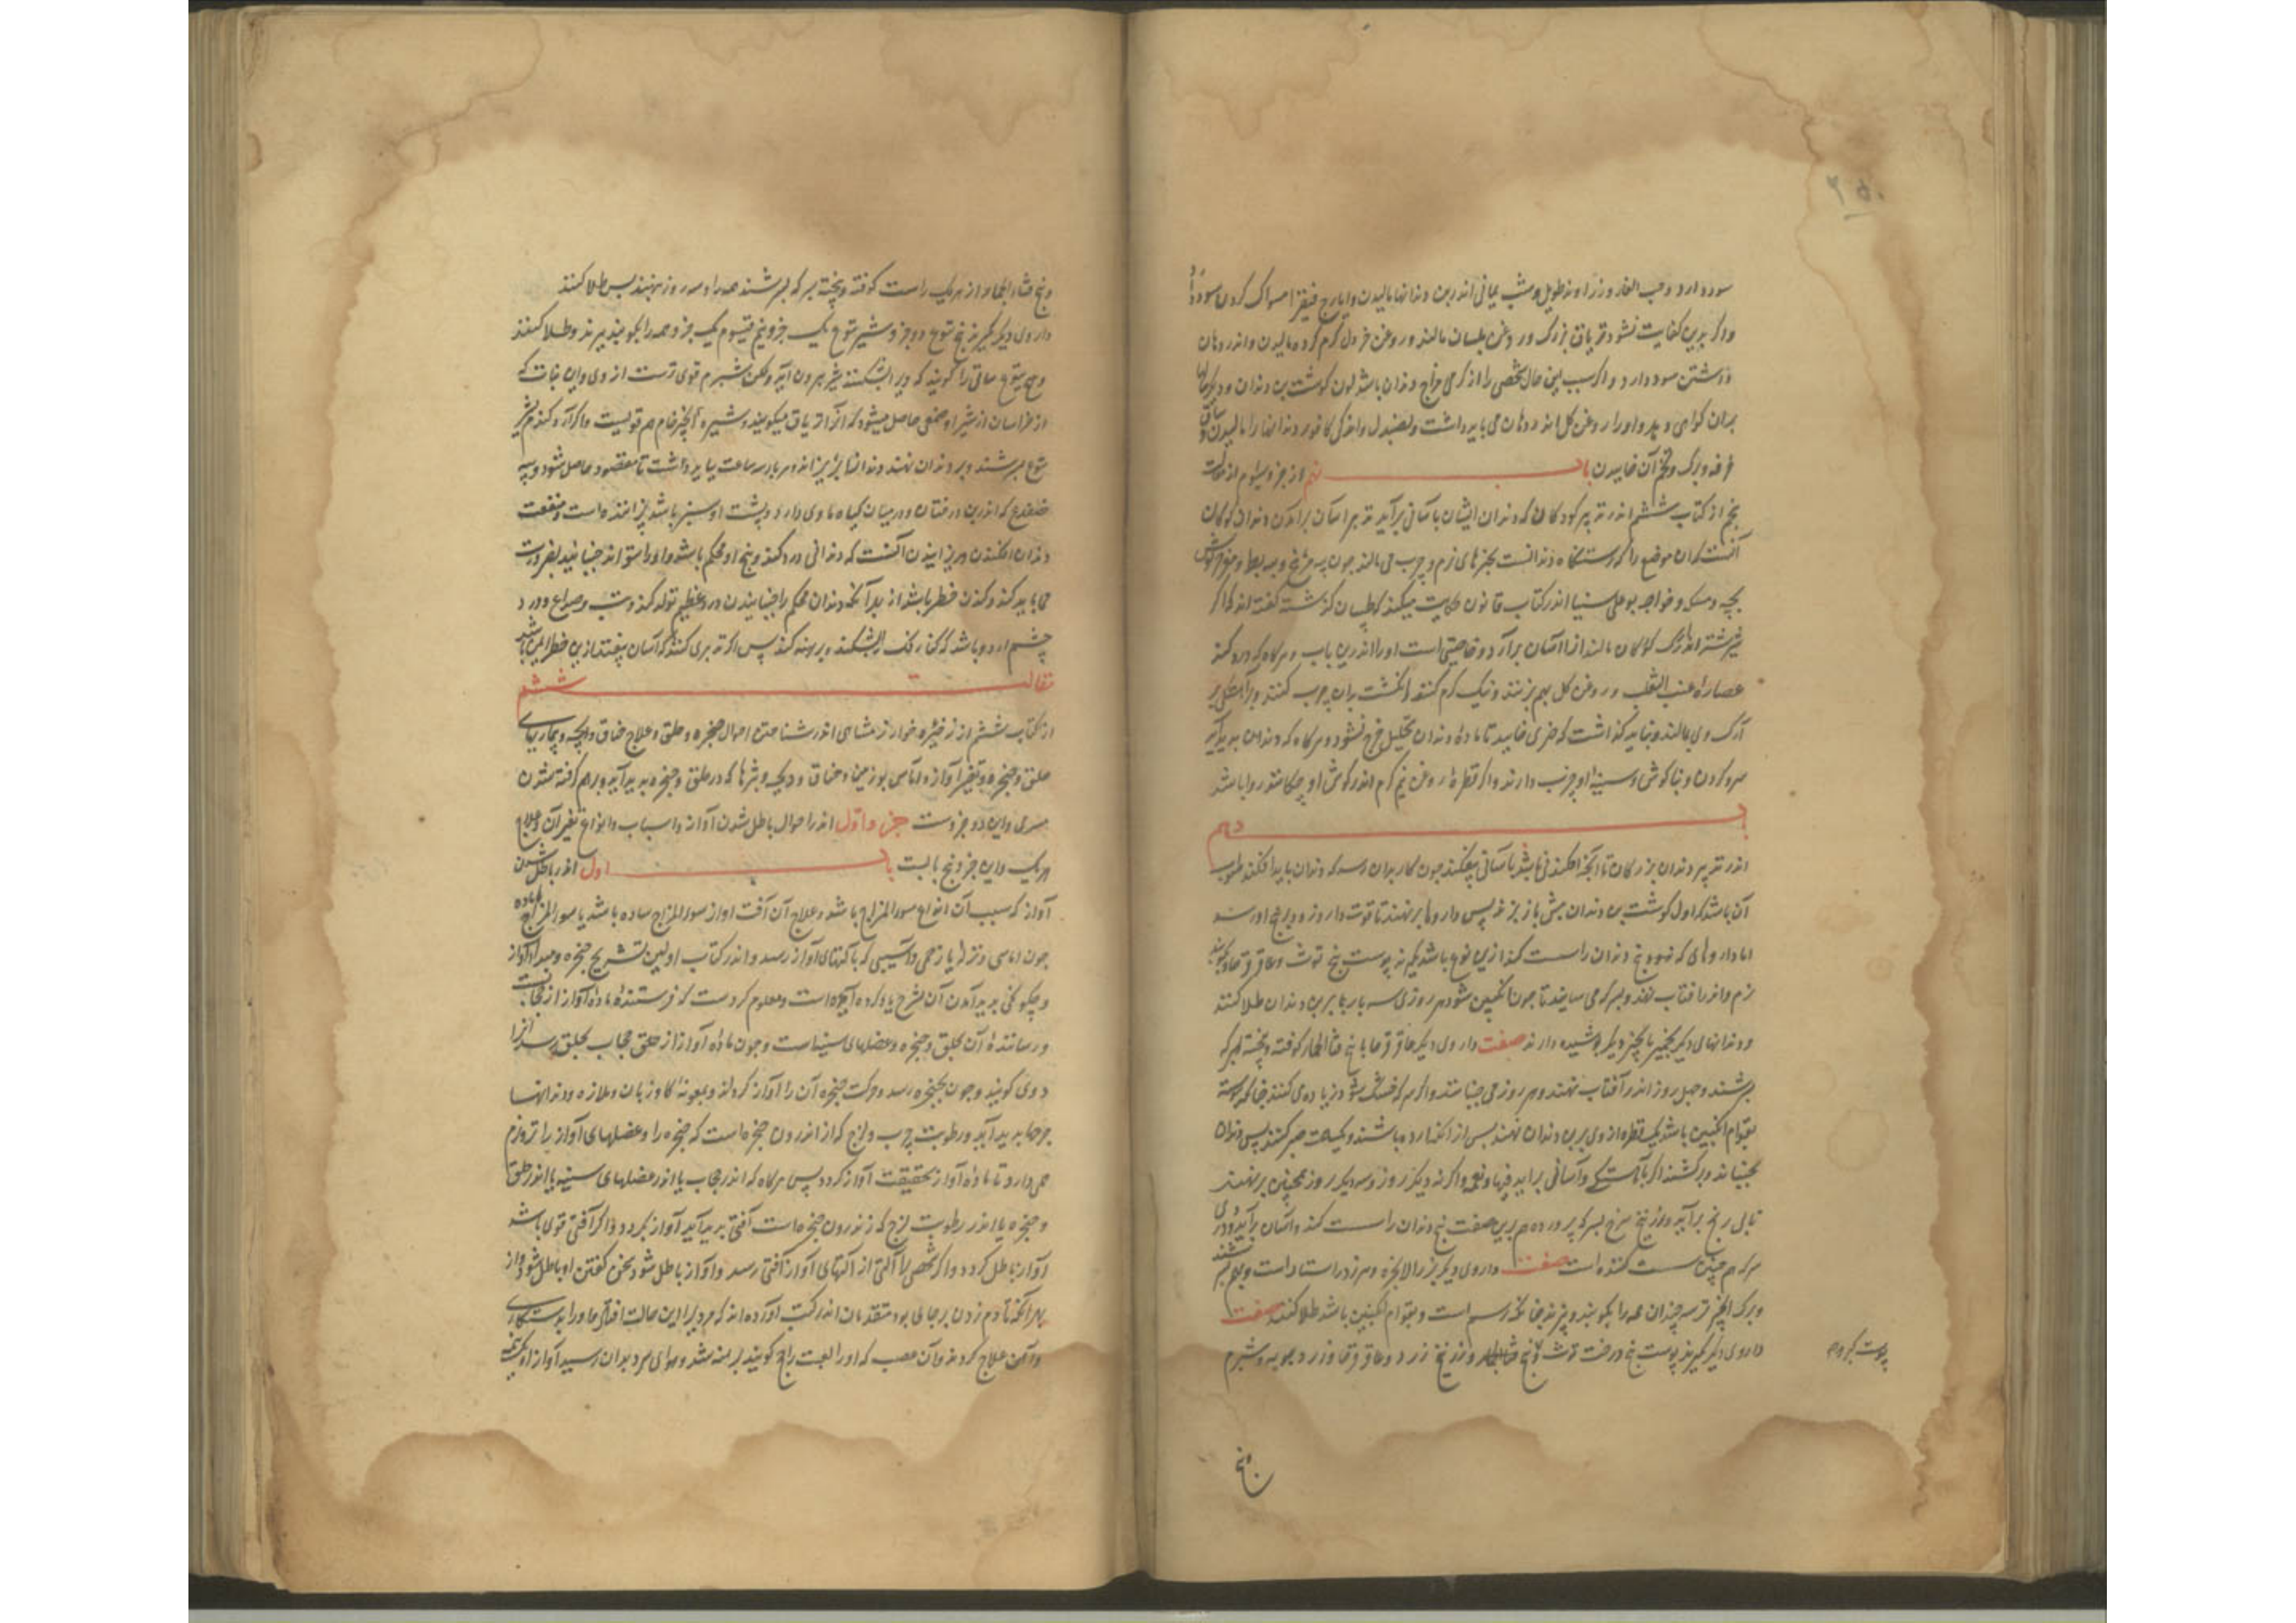 ۲۵۰
سود دارد و حب الغار و زراوند طویل و شب یمانی اندر بن دندانها مالیدن و ایارج فیقرا مسواک کردن سود دارد
و اگر بدین کفایت نشود تریاق بزرگ و روغن بلسان مالند و روغن خردل گرم کرده مالیدن و اندر دهان
داشتن سود دارد و اگر سبب این حال شخصی را از گرمی مزاج دندان باشد لون گوشت بن دندان و دیگر
بران گواهی دهد و او را روغن گل اندر دهان می باید داشت و بصندل و اندکی کافور دندانها را مالیدن و
خرفه و برگ و تخم آن خاییدن باب نهم از جزو سوم از مقالت
پنجم از کتاب ششم اندر تدبیر کودکان که دندان ایشان باسانی برآید تدبیر آسان برآمدن دندان کودکان
آنست که آن موضع را که رستنگاه دندانست بچیزهای نرم و چرب می مالند چون پیه مرغ و پیه بط و مغز خرگوش
بچه و مسکه و خواجه بوعلی سینا اندر کتاب قانون حکایت میکند که طبیبان گذشته گفته اند که اگر
شیر سگ اندر کودکان مالند دندانها آسان برآرد و خاصیتی است او را اندرین باب و هرگاه که درد کند
عصاره عنب الثعلب و روغن گل بهم بزنند و نیک گرم کنند و انگشت بدان چرب کنند و برآهستگی بر
آرک وی مالند و نباید گذاشت که چیزی خاید تا ماده دندان تحلیل خرج نشود و هرگاه که دندان پدید آید
سر و گردن و بناگوش و سینه او چرب دارند و اگر قطره روغن نیم گرم اندر گوش او چکانند روا باشد
باب دهم
اندر تدبیر دندان بزرگان تا آنچه افکندنی باشد باسانی بیفکند چون کار بدان رسد که دندان باید افکند صواب
آن باشد که اول گوشت بن دندان بیش باز برند پس داروها برنهند تا قوت دارو زود به بیخ او رسد
اما داروهای که زود بیخ دندان را سست کند ازین نوع باشد بگیرند پوست بیخ توث و عاقرقرحا و بکوبند
نرم و اندر آفتاب نهند و بسرکه می سایند تا چون انگبین شود هر روزی سه بار بر بن دندان طلا کنند
و دندانهای دیگر بخمیر یا بچیز دیگر پوشیده دارند صفت داروی دیگر عاقرقرحا با بیخ قثاء الحمار کوفته و بیخته بسرکه
بسرشند و چهل روز اندر آفتاب نهند و هر روز می جنبانند و اگر سرکه خشک شود زیاده می کنند چنانکه پیوسته
بقوام انگبین باشد یک قطره از وی بر بن دندان نهند پس از آنکه آرد باشند و یک ساعت صبر کنند پس دندان
بجنبانند و برکشند اگر بآهستگی و آسانی برآید فبها و نعمه و اگر نه دیگر روز و سه دیگر روز همچنین برنهند
تا بی رنج برآید و زرنیخ سرخ بسرکه پرورده هم برین صفت بیخ دندان را سست کند و آسان برآید و دردی
سرکه هم چنین سست کننده است صفت داروی دیگر بزر الانجره و هر دو راستا راست و به
و برگ انجیر تر سه چندان همه را بکوبند و بپزند چنانکه رسم است و بقوام انگبین باشد طلا کنند صفت
داروی دیگر بگیرند پوست بیخ درخت توث و بیخ قثاء الحمار و زرنیخ زرد و عاقرقرحا و زرد چوبه و شبرم
پوست کبر
و بیخ
و بیخ قثاء الحمار از هر یک راست کوفته و بیخته بسرکه بسرشند همه را و سه روز بنهند پس طلا کنند
داروی دیگر بگیرند بیخ یتوع دو جزو شیر یتوع یک جزو نیم قیسوم یک جزو همه را بکوبند و بپزند و طلا کنند
و هم یتوع ساقی را گویند که ویرا بشکنند شیر بیرون آید و لکن شبرم قوی ترست از وی و این نبات که
از خراسان از شیر او صمغی حاصل میشود که آنرا تریاق میگویند و شیره انجیر خام هم قویست و اگر آرد گندم بشیر
یتوع بسرشند و بر دندان نهند دندانها بریزاند و هر بار سه ساعت بباید داشت تا مقصود حاصل شود و پیه
ضفدع که اندر بن درختان و درمیان گیاه ماوی دارد و پشت او سبز باشد پزانیده است و منفعت
دندان افکندن و ریزانیدن آنست که دندانی درد کند و بیخ او محکم باشد و او را نتواند جنبانید بضرورت
می باید کند و کندن خطر باشد از بهر آنکه دندان محکم را جنبانیدن درد عظیم تولد کند و تب و صداع و درد
چشم آرد و باشد که کناره فک را بشکند و برهنه کند پس اگر تدبیری کنند که آسان بیفتد ازین خطر ایمن باشد
مقالت ششم
از کتاب ششم از ذخیره خوارزمشاهی اندر شناختن احوال حنجره و حلق و علاج خناق و ذبحه و بیماریهای
حلق و حنجره و تغیر آواز و آماس لوزتین و خناق و ذبحه و بثرها که در حلق و حنجره پدید آید و برهم گرفته شدن
مری و این دو جزوست جزو اول اندر احوال باطل شدن آواز و اسباب و انواع تغیر آن و علاج
هر یک و این جزو پنج بابست باب اول اندر باطل شدن
آواز که سبب آن انواع سوء المزاج باشد و علاج آن آفت آواز سوء المزاج ساده باشد یا سوء المزاج با ماده
چون آماسی و نزله یا زخمی و آسیبی که بآلتهای آواز رسد و اندر کتاب اولین تشریح حنجره و مبدا آواز
و چگونگی پدید آمدن آن بشرح یاد کرده آمده است و معلوم کردست که فرستنده ماده آواز از حجابست
و رساننده آن بحلق و حنجره و عضلهای سینه است و چون ماده آواز از حلق حجاب بحلق رسد آنرا
دوی گویند و چون بحنجره رسد و حرکت حنجره آن را آواز گرداند و بمعونه کام و زبان و ملازه و دندانها
حرفها پدید آید و رطوبت چرب و لزج که از اندرون حنجره است که حنجره را و عضلهای آواز را تر و نرم
همی دارد تا ماده آواز بحقیقت آواز گردد پس هرگاه که اندر حجاب یا اندر عضلهای سینه یا اندر حلق
و حنجره یا اندر رطوبت لزج که اندرون حنجره است آفتی پدید آید آواز بگردد و اگر آفتی قوی باشد
آواز باطل گردد و اگر شخصی را آلتی از آلتهای آواز آفتی رسد و آواز باطل شود سخن گفتن او باطل شود و از
بهر آنکه تا دم زدن برجای بود متقدمان اندر کتب آورده اند که مردی را این حالت افتاد و او را بدستکاری
و آهن علاج کردند و آن عصب که او را العصب راجع گویند برهنه شد و هوای سرد بدان رسید آواز او یک نیمه